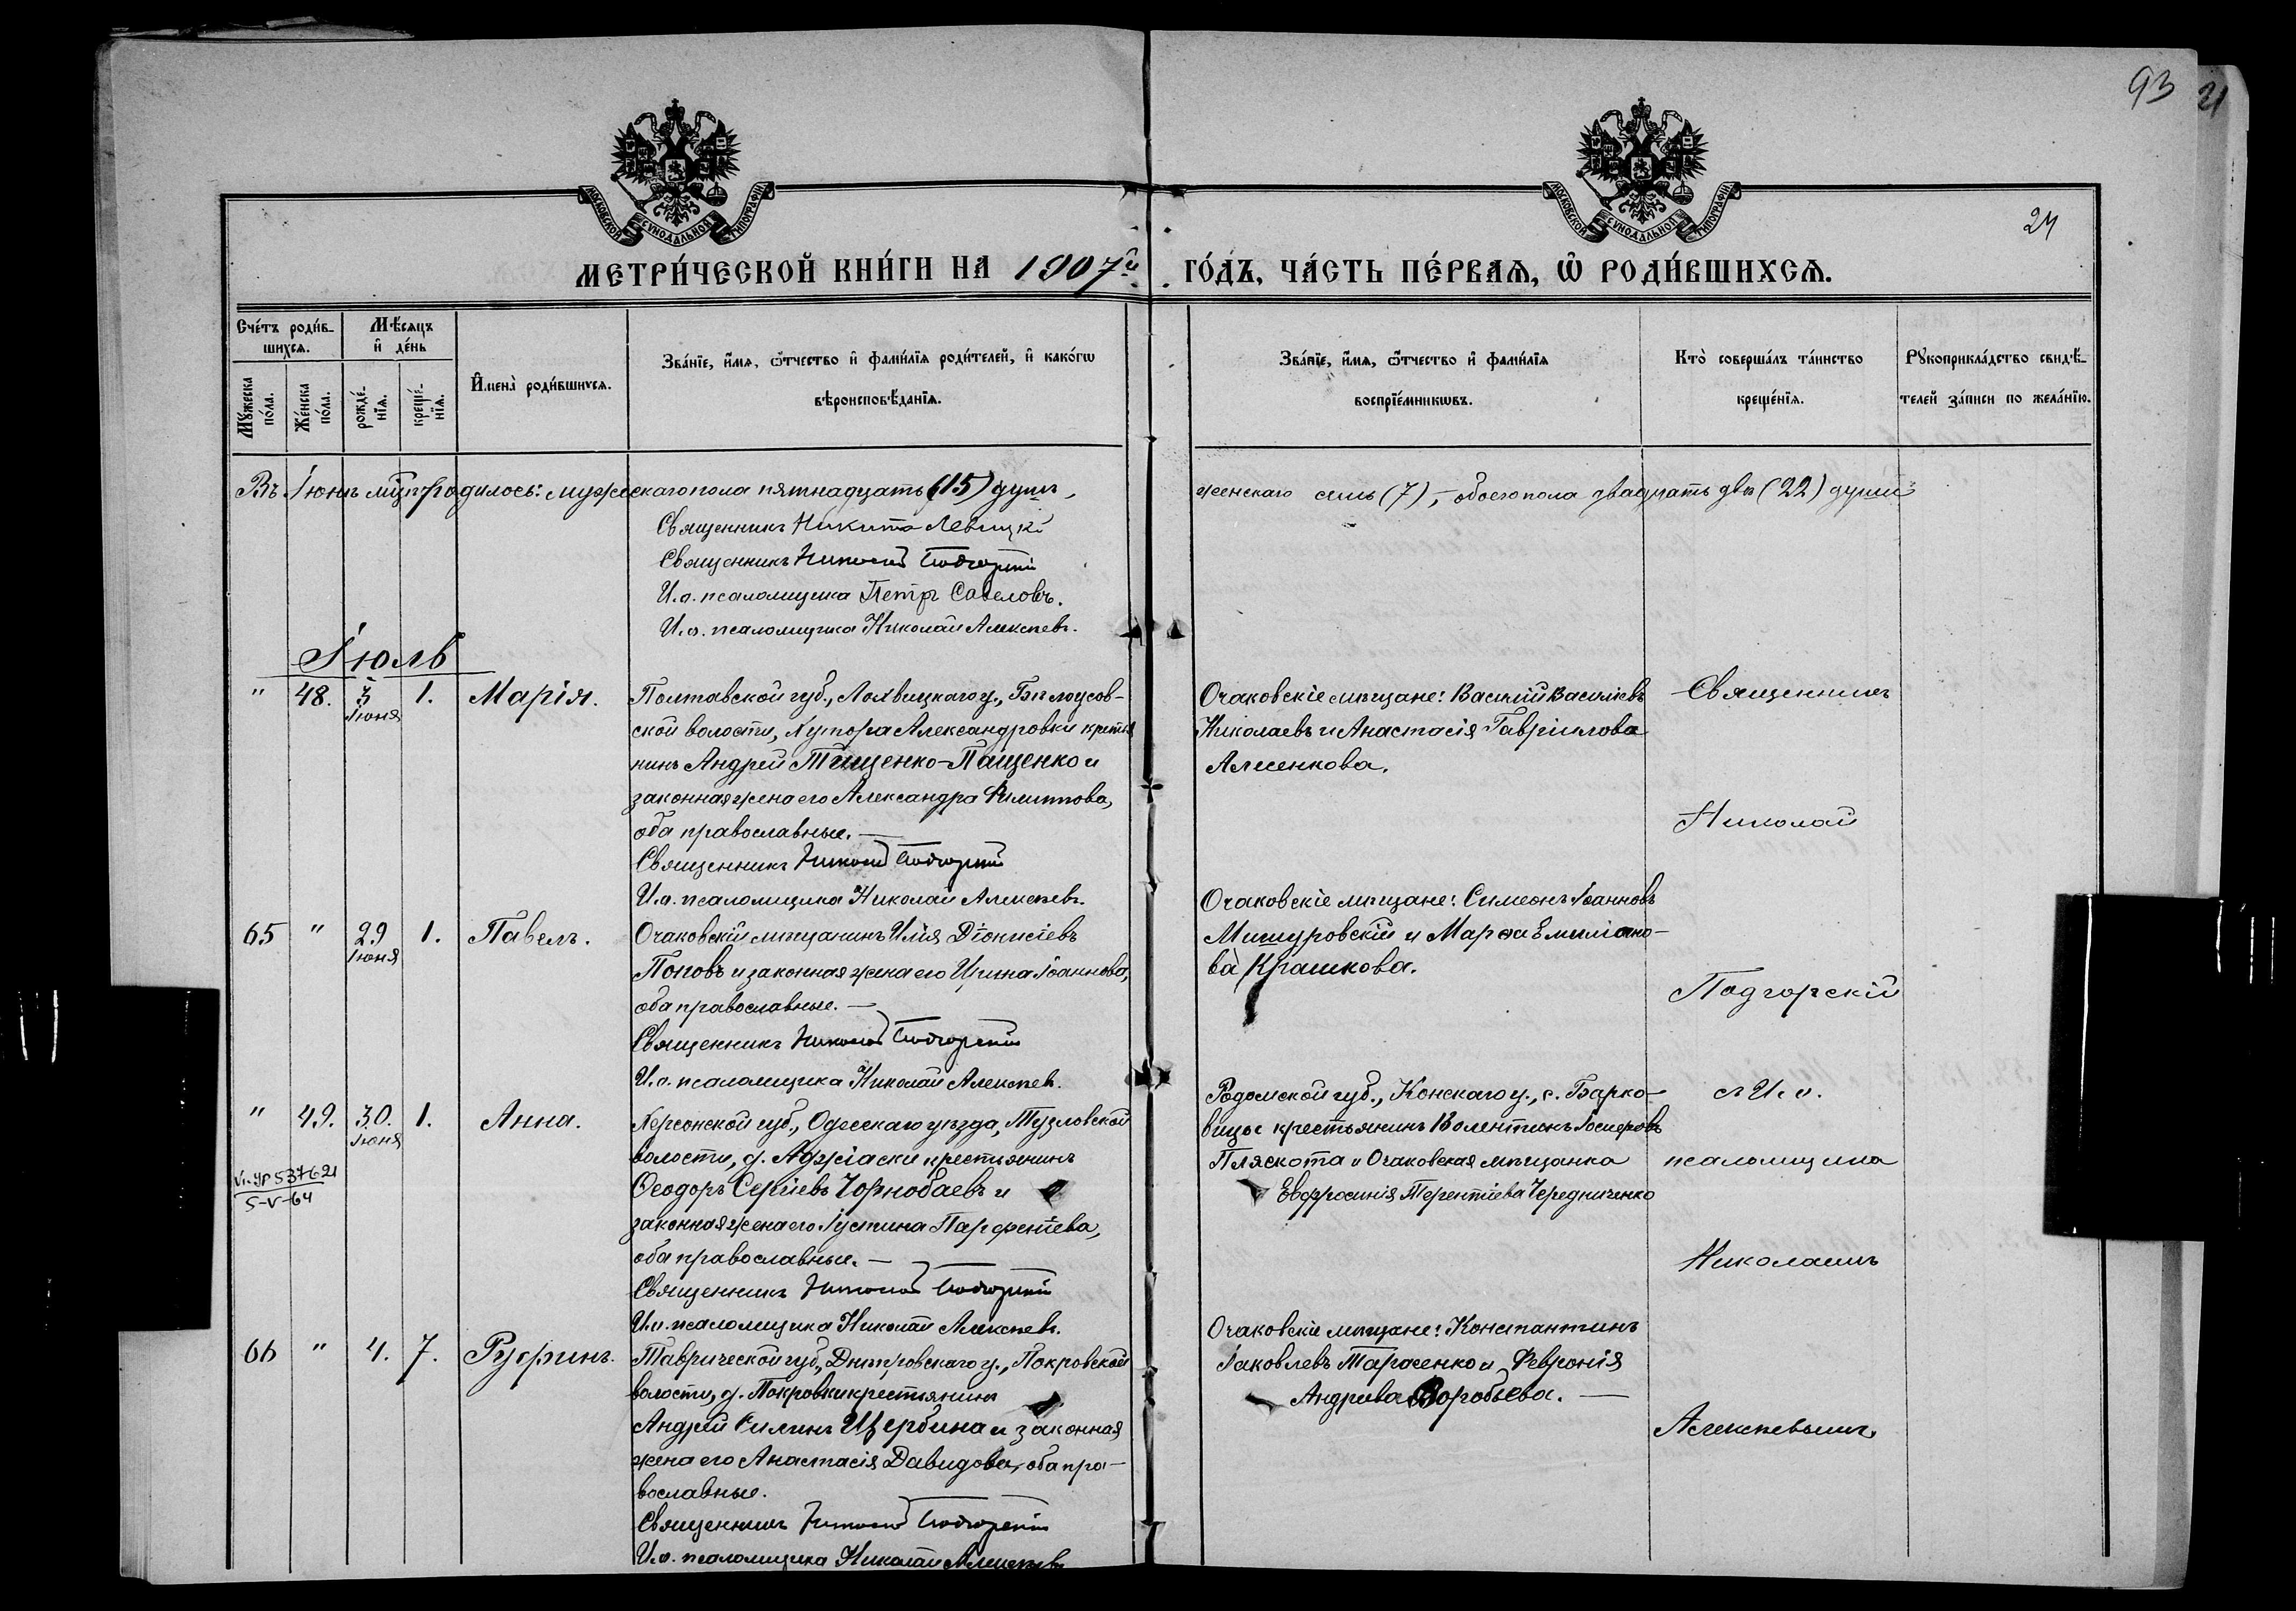 93
21
МОСКОВСКОЙ СѴНОДАЛЬНОЙ ТИПОГРАФІИ
МОСКОВСКОЙ СѴНОДАЛЬНОЙ ТИПОГРАФІИ
24
МЕТРИ́ЧЕСКОЙ КНИ́ГИ НА 1907й ГО́ДЪ, ЧА́СТЬ ПЕ́РВАѦ, Ѡ҆ РОДИ́ВШИХСѦ.
Сче́тъ роди́в-
шихсѧ.
Мѣ́сѧцъ
и҆ де́нь
Мꙋ́жеска
по́ла.
Же́нска
по́ла.
рожде́-
нїѧ.
креще́-
нїѧ.
И҆мена̀ роди́вшихсѧ.
Зва́нїе, и҆́мѧ, ѻ҆́тчество и҆ фами́лїѧ роди́телей, и҆ како́гѡ
вѣроисповѣ́данїѧ.
Зва́нїе, и҆́мѧ, ѻ҆́тчество и҆ фами́лїѧ
воспрїе́мникѡвъ.
Кто̀ соверша́лъ та́инство
креще́нїѧ.
Рꙋкоприкла́дство свидѣ́-
телей за́писи по жела́нїю.
Въ Іюнѣ мцѣ родилось: мужескаго пола пятнадцать (15) душъ, женскаго семь (7), – обоего пола двадцать двѣ (22) души
Священникъ Никита Левицкі
Священникъ Николай Подгорскій
И.о. псаломщика Петръ Савеловъ.
И.о. псаломщика Николай Алексѣевъ.
Іюль
" 48. 3 Іюня 1. Марія.
Полтавской губ., Лохвицкаго у., Бѣлоусов-
ской волости, Хутора Александровки крестья
нинъ Андрей Тищенко-Пащенко и
законная жена его Александра Филиппова,
оба православные. —
Священникъ Николай Подгорскій
И.о. псаломщика Николай Алексѣевъ.
Очаковскіе мѣщане: Василій Василіевъ
Николаевъ и Анастасія Гавріилова
65 " 29 Іюня 1. Павелъ.
Очаковскій мѣщанинъ Илія Діонисіевъ
Поповъ и законная жена его Ирина Іоаннова,
оба православные. —
Священникъ Николай Подгорскій
И.о. псаломщика Николай Алексѣевъ.
Очаковскіе мѣщане: Симеонъ Іоанновъ
Мишуровскій и Марѳа Емиліано-
ва Крашкова.
" 49. 30. Іюня 1. Анна.
537621
5-V-64
Херсонской губ., Одесскаго уѣзда, Тузловской
волости, д. Аджіаски крестьянинъ
Ѳеодоръ Сергіевъ Чорнобаевъ и
законная жена его Іустина Парѳентіева,
оба православные. —
Священникъ Николай Подгорскій
И.о. псаломщика Николай Алексѣевъ.
Радомской губ., Конскаго у., с. Барко-
вицы крестьянинъ Валентинъ
Пляскота и Очаковская мѣщанка
Евфросинія Терентіева Чередниченко
66 " 4. 7. Руфинъ.
Таврической губ., Днѣпровскаго у., Покровской
волости, д. Покровки крестьянинъ
Андрей Щербина и законная
жена его Анастасія Давидова, оба пра-
вославные.
Священникъ Николай Подгорскій
И.о. псаломщика Николай Алексѣевъ
Очаковскіе мѣщане: Константинъ
Іаковлевъ Тарасенко и Февронія
Андреева Воробьева. —
Священникъ
Николай
Подгорскій
съ И. о.
псаломщика
Николаемъ
Алексѣевымъ.